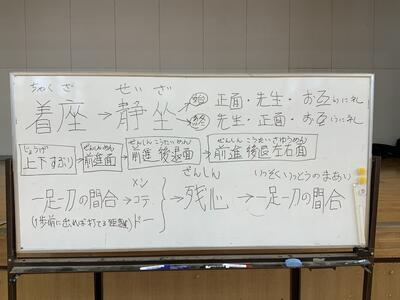 ちゃくざ せいざ
着座→静坐→始 正面・先生・お互いに礼
→終 先生・正面・お互いに礼
じょうげ ぜんしんめん ぜんしん こうたいめん ぜんしん こうたいさゆうめん
上下すぶり→前進面→前進後退面→前進後退左右面
メン ざんしん いっそくいっとうのまあい
一足一刀の間合→コテ→残心→一足一刀の間合
(1歩前に出れば打てる距離)ドー